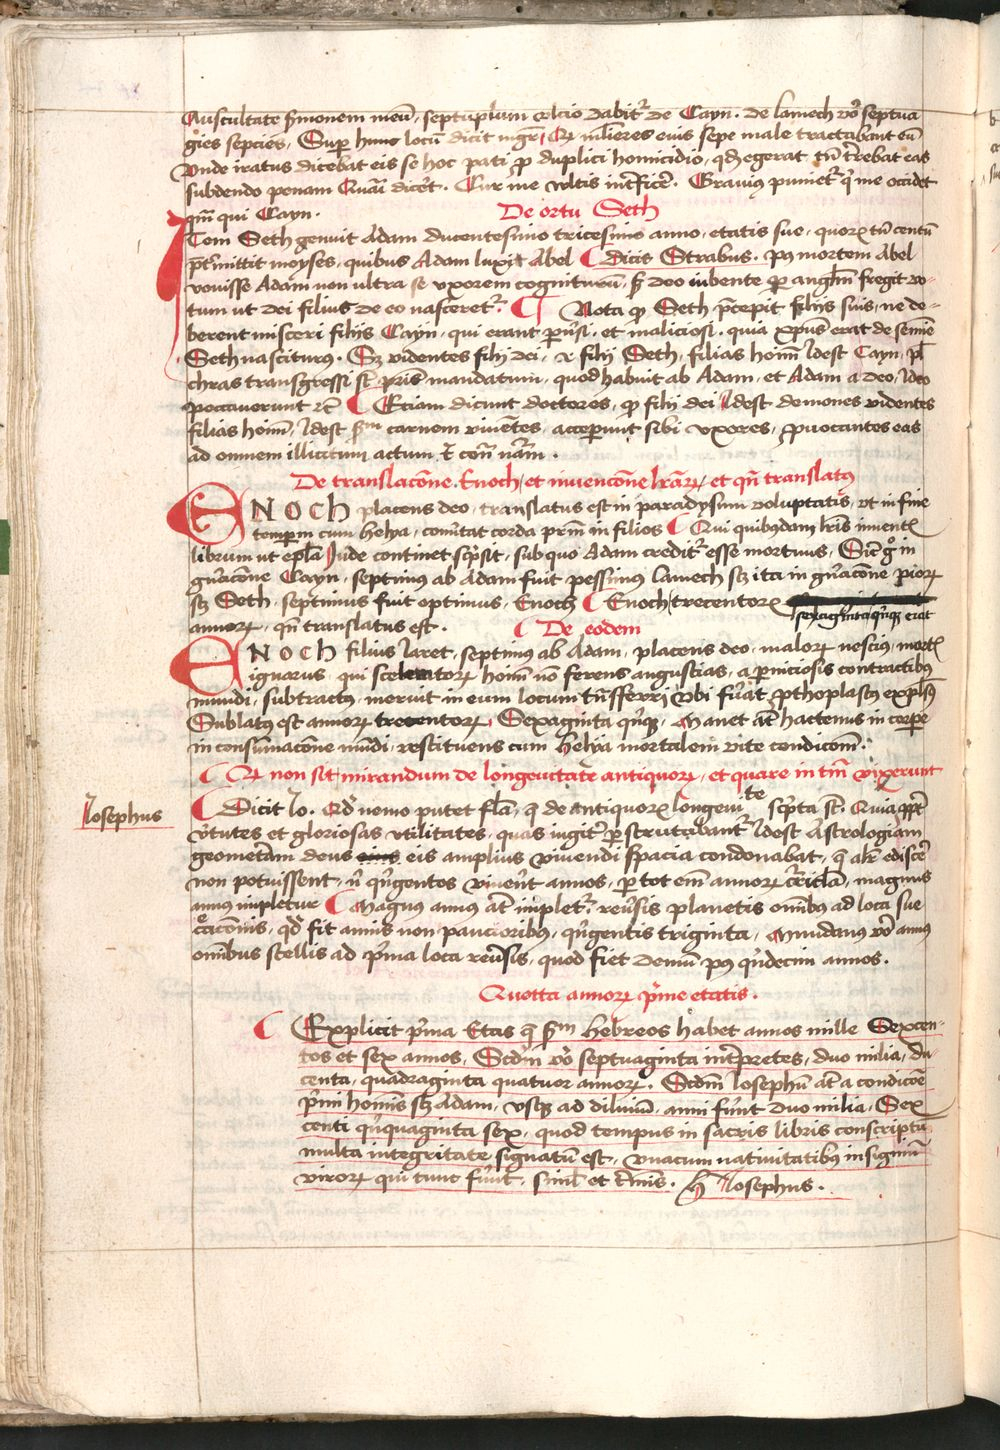 Auscultate s̄monem meū, septuplum vlcio dabit᷑ de Cayn. de lamech v̊o septua
gies sepcies, Sup̄ hunc locū dicit mgr̄, Qꝫ mlieres eius sepe male tractabant eū
Vnde iratus dicebat eis se hoc pati p̄ duplici homicidio, qd̄ egerat tn̄ t̄rebat eas
subdendo penam Quasi dicēt. Cur me vltis int̄ficē. Grauius puniet᷑ qͥ me occidet
qm̄ qui Cayn.
De ortu Seth
ITem Seth genuit Adam ducentesimo tricesimo anno, etatis sue, quoꝝ tn̄ centū
p̄t̄mittit moyses, quibus Adam luxit Abel Dicit Strabus. pꝰ mortem Abel
vouisse Adam non ultra se vxorem cogniturū, s̄ deo iubente p̄ anglm̄ fregit vo-
tum ut dei filius de eo nasceret᷑. Nota ꝙ Seth, p̄cepit filijs suis, ne de-
berent misceri filijs Cayn, qui erant p̄uersi, et maliciosi, quia xp̄us erat de semīe
Seth nasciturꝰ. Sꝫ videntes filij dei, .i. filij Seth, filias hoīm Idest Cayn, pl̄
chras transgressi st̄ pris mandatum, quod habuit ab Adam, et Adam a deo, Ideo
peccauerunt etc̄ Eciam dicunt doctores, ꝙ filij dei Idest demones videntes
filias hoīm, Idest s̄m carnem viuētes, acceperunt sibi vxores, ꝓuocantes eas
ad omnem illicitum actum et contra naturam.
De translacōne. Enoch, et inuencōne lr̄aꝝ, et qn̄ translatꝰ
ENOCH placens deo, translatus est in paradysum voluptatis, vt in fine
temporum cum helya, conūtat corda prm̄ in filios Qui quibꝰdam lr̄is inuentꝭ
librum ut epl̄a Iude continet scpͥsit, sub quo Adam credit᷑ esse mortuus, Sic g̊ in
gn̄acōne Cayn, septimus ab Adam fuit pessimus lamech sꝫ ita in gn̄acōne pioꝝ
sꝫ Seth, septimus fuit optimus, Enoch Enoch trecentoꝝ
sexagintaqͥnqꝫ erat
annoꝝ, qn̄ translatus est.
De eodem
ENOCH filius Iaret, septimus ab Adam, placens deo, maloꝝ nescius, mortꝭ
ignarus, qui sceleratoꝝ hoīm nō ferens angustias, a p̄niciosis contractibꝰ
mundi, subtractꝰ, meruit in eum locum tn̄sferri vbi fūat ꝓthoplastꝰ explsꝰ
Sublatꝰ est annoꝝ trecentoꝝ, Sexaginta qͥnqꝫ, Manet aūt hactenus in corpe
in consumacōne mūdi, restituens cum helya mortalem vite condicōm.
Qꝫ non sit mirandum de longeuitate antiquoꝝ, et quare in tm̄ vixerunt
Iosephus
Dicit Io. Qd̄ nemo putet fl̄a, q̄ de antiquoꝝ longeuite sc̄pta st̄. Quia ꝓpt̄
v̄tutes et gloriosas vtilitates, quas iugit᷑ p̄scrutabant᷑ Idest Astrologiam
geometriam deus eis amplius viuendi spacia condonabat, q̄ alr̄ ediscē
non potuissent, ni qͥngentos viuēnt annos, p̄ tot em̄ annoꝝ curricla, magnus
annus impletur Magnus annus aūt implet᷑, reūsis planetis omībus ad loca sue
creacionis, qd̄ fit annis non paucioribus, qͥngentis triginta, Mundanus v̊o annus
omībus stellis ad pͥma loca reūsis, quod fiet demū pꝰ qͥndecim annos.
Quotta annoꝝ pͥme etatis.
Explicit pͥma Etas q̄ s̄m hebreos habet annos mille Sexcen-
tos et sex annos, Scdm̄ v̊o septuaginta int̄pretes, duo milia, du
centa, quadraginta quatuor annoꝝ. Scdm̄ Iosephū aūt a condicōe
pͥmi homīs sꝫ Adam, vsqꝫ ad diluuiū, anni fūnt duo milia, Sex
centi qͥnquaginta sex, quod tempus in sacris libris conscriptū
multa integritate signatū est, vnacum natiuitatibꝰ insigniū
viroꝝ qui tunc fūnt, simil et t̄minis. hͦ Iosephus.